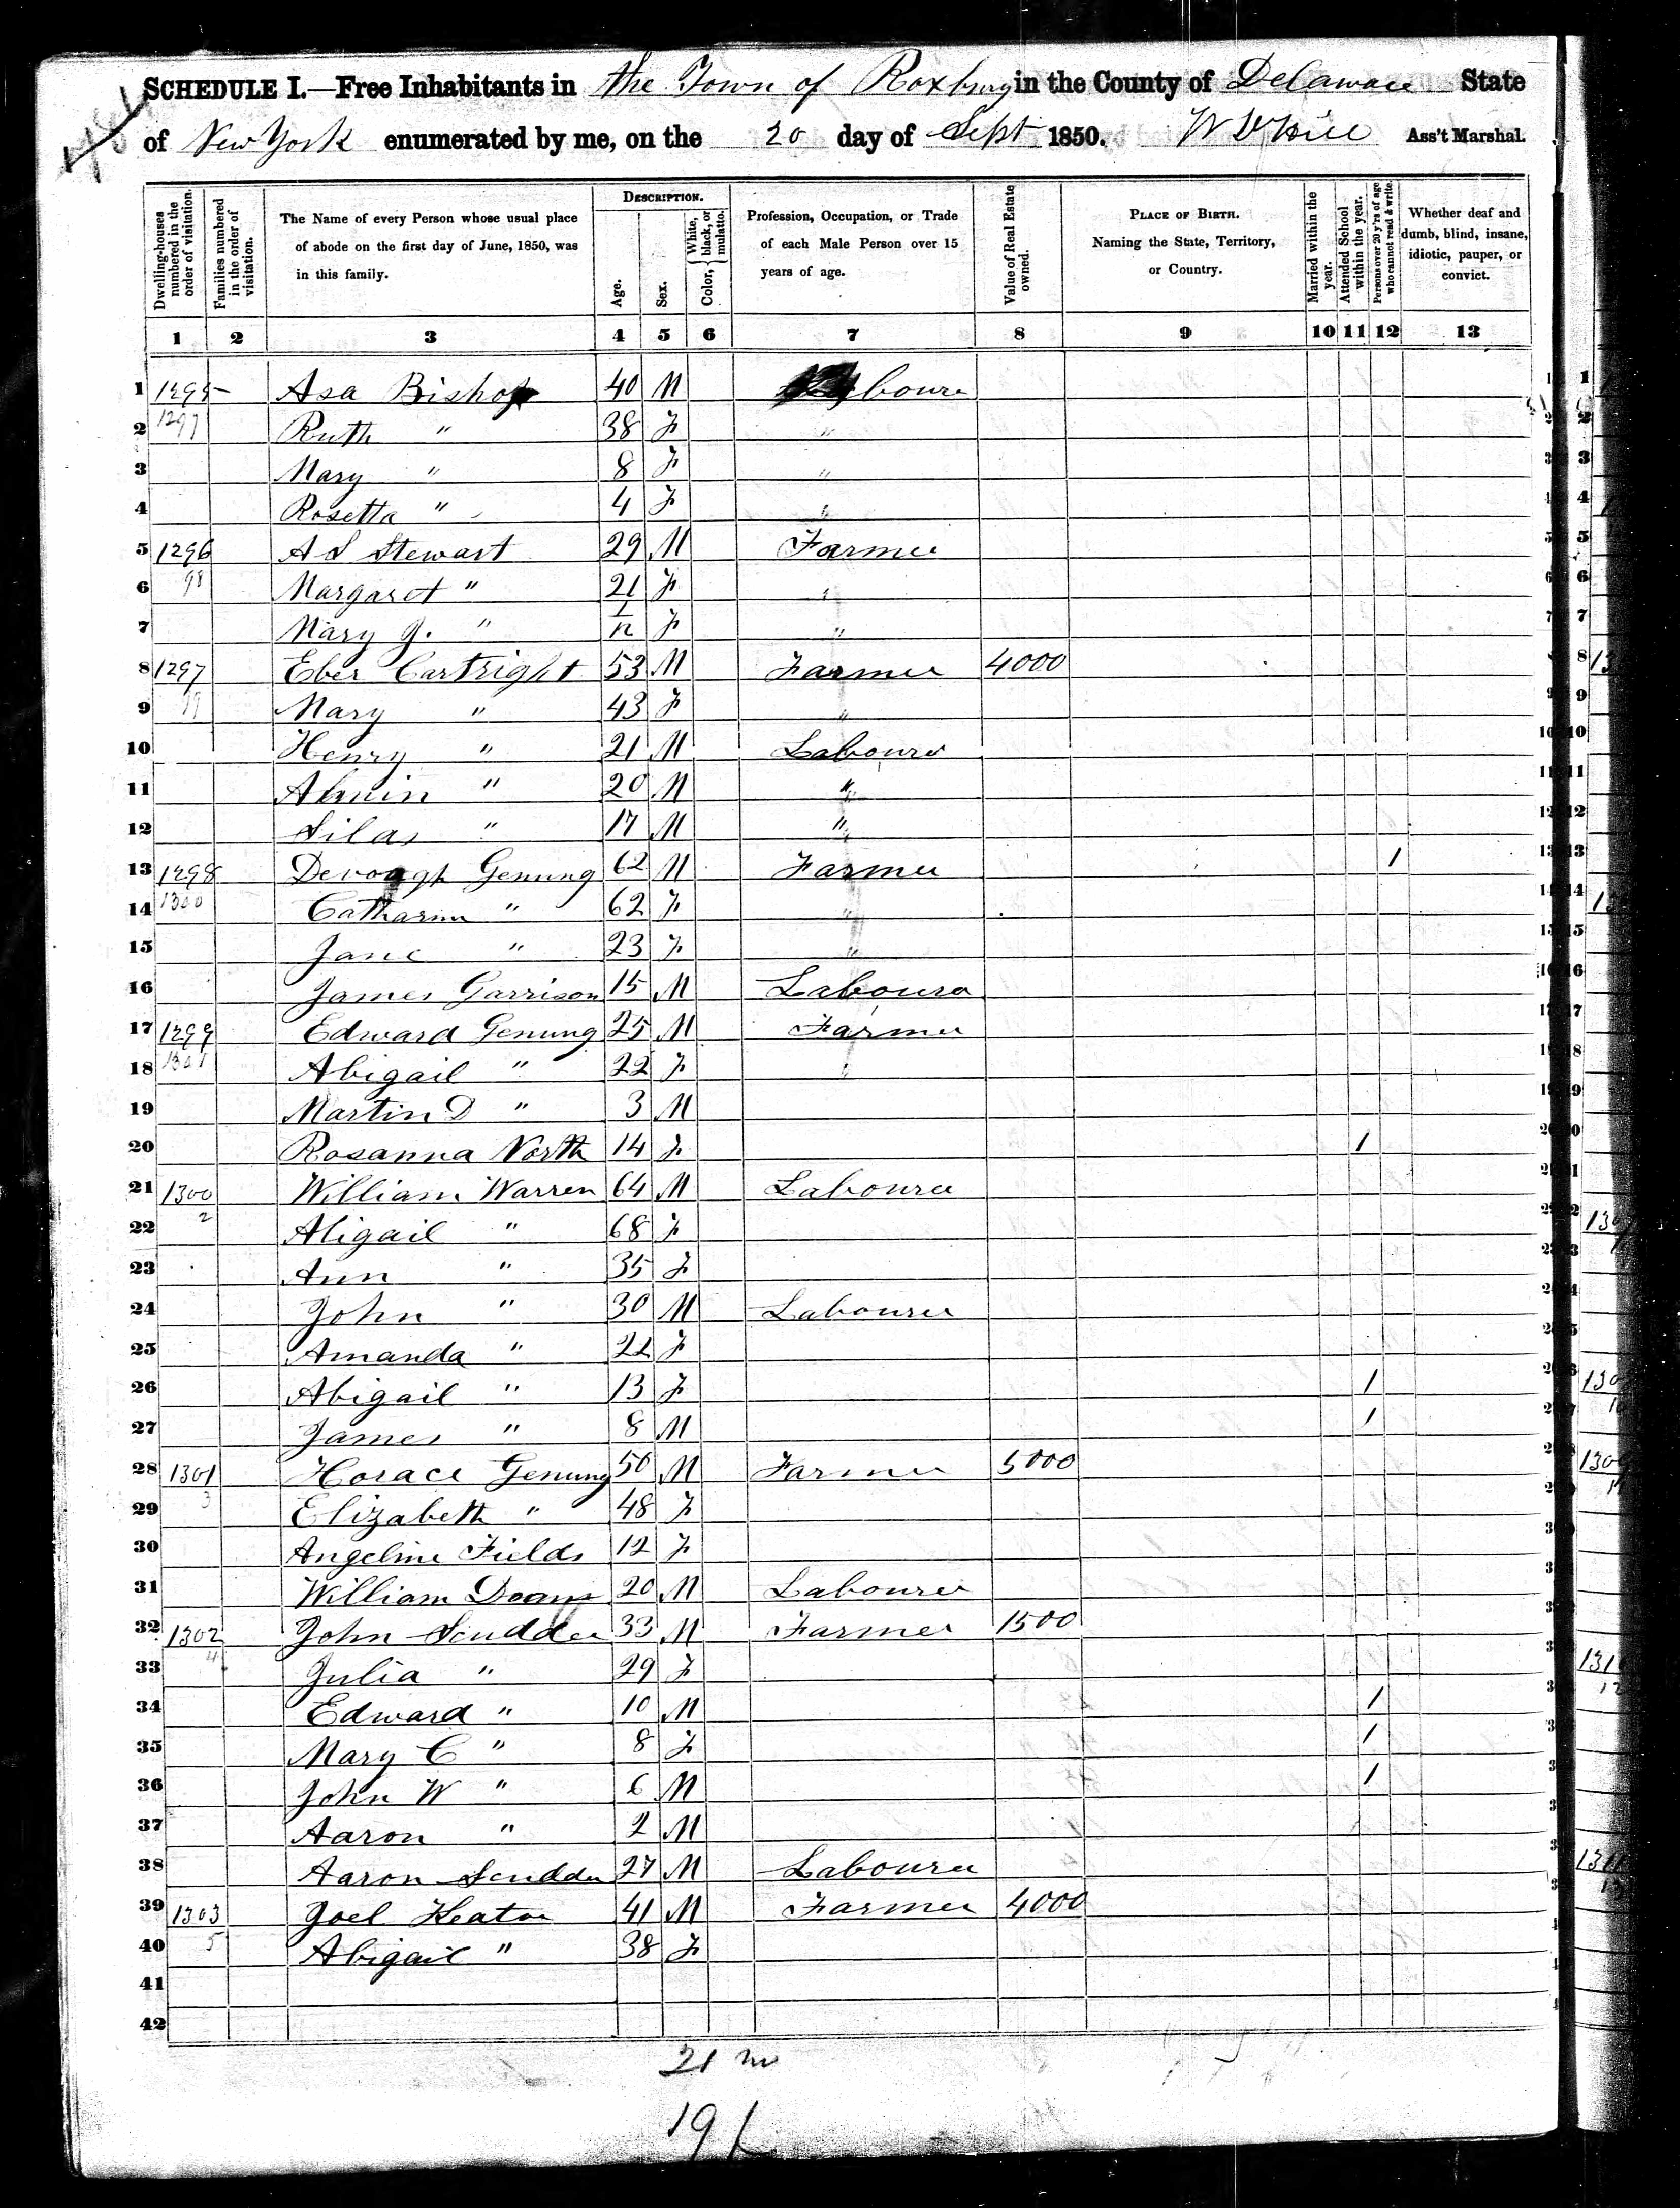 SCHEDULE I.—Free Inhabitants in the Town of Roxbury in the County of Delaware State
of New York enumerated by me, on the 20 day of Sept 1850. W D Hill Ass't Marshal.
Dwelling-houses numbered in the order of visitation.
Families numbered in the order of visitation.
The Name of every Person whose usual place of abode on the first day of June, 1850, was in this family.
DESCRIPTION.
Age.
Sex.
Color, { White, black, or mulatto.
Profession, Occupation, or Trade of each Male Person over 15 years of age.
Value of Real Estate owned.
PLACE OF BIRTH. Naming the State, Territory, or Country.
Married within the year.
Attended School within the year.
Persons over 20 y'rs of age who cannot read & write.
Whether deaf and dumb, blind, insane, idiotic, pauper, or convict.
1 2 3 4 5 6 7 8 9 10 11 12 13
1 1295 Asa Bishop 40 M Labourer
2 1297 Ruth " 38 F "
3 Mary " 8 F "
4 Rosetta " 4 F "
5 1296 A S Stewart 29 M Farmer
6 98 Margaret " 21 F "
7 Mary J. " 1/12 F "
8 1297 Eber Cartright 53 M Farmer 4000
9 99 Mary " 43 F "
10 Henry " 21 M Labourer
11 Alvin " 20 M "
12 Silas " 17 M "
13 1298 Genung 62 M Farmer 1
14 1300 Catharine " 62 F "
15 Jane " 23 F "
16 James Garrison 15 M Labourer
17 1299 Edward Genung 25 M Farmer
18 1301 Abigail " 22 F "
19 Martin D " 3 M
20 Rosanna North 14 F 1
21 1300 William Warren 64 M Labourer
22 2 Abigail " 68 F
23 Ann " 35 F
24 John " 30 M Labourer
25 Amanda " 22 F
26 Abigail " 13 F 1
27 James " 8 M 1
28 1301 Horace Genung 50 M Farmer 5000
29 3 Elizabeth " 48 F
30 Angeline Fields 12 F
31 William Doans 20 M Labourer
32 1302 John Scudder 33 M Farmer 1500
33 4 Julia " 29 F
34 Edward " 10 M 1
35 Mary C " 8 F 1
36 John W " 6 M 1
37 Aaron " 2 M
38 Aaron Scudder 27 M Labourer
39 1303 Joel Keator 41 M Farmer 4000
40 5 Abigail " 38 F
41
42
21 m
19 f